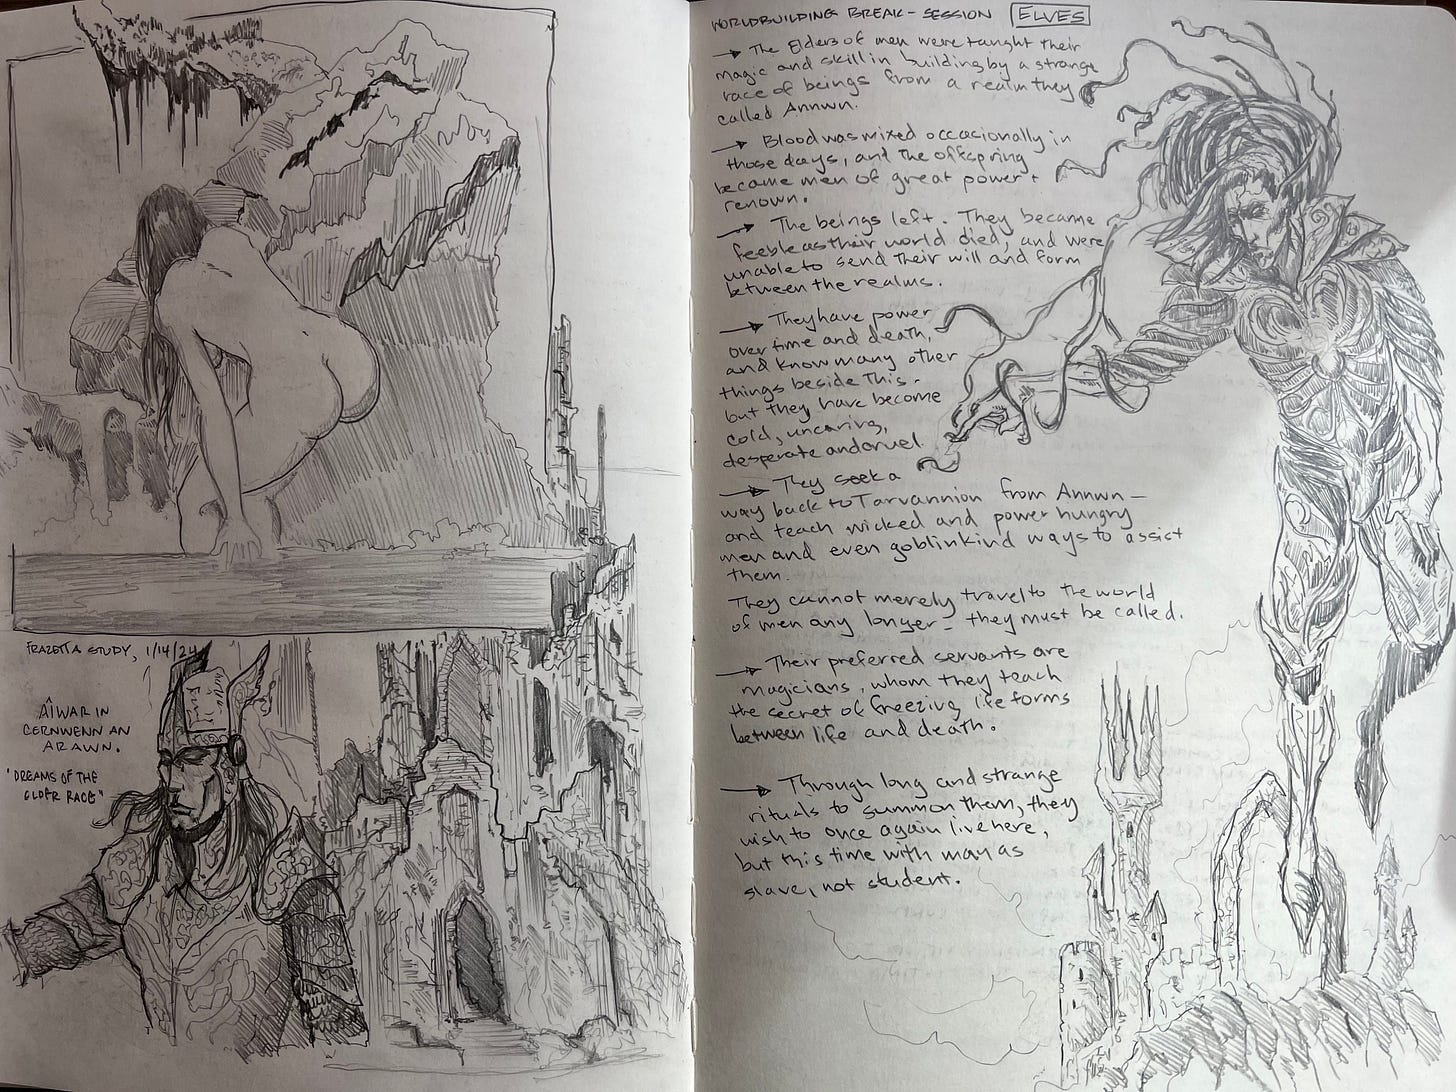 FRAZETTA STUDY, 1/14/24
ÂIWAR IN
CERNWENN AN
ARAWN.
"DREAMS OF THE
OLDER RACE"
WORLDBUILDING BREAK - SESSION ELVES
→ The Elders of men were taught their
magic and skill in building by a strange
race of beings from a realm they
called Annwn.
→ Blood was mixed occasionally in
those days, and the offspring
became men of great power +
renown.
→ The beings left. They became
feeble as their world died, and were
unable to send their will and form
between the realms.
→ They have power
over time and death,
and know many other
things beside this -
but they have become
cold, uncaring,
desperate and cruel
→ They seek a
way back to Tarvannion from Annwn -
and teach wicked and power hungry
men and even goblinkind ways to assist
them.
They cannot merely travel to the world
of men any longer - they must be called.
→ Their preferred servants are
magicians, whom they teach
the secret of freezing life forms
between life and death.
→ Through long and strange
rituals to summon them, they
wish to once again live here,
but this time with man as
slave, not student.